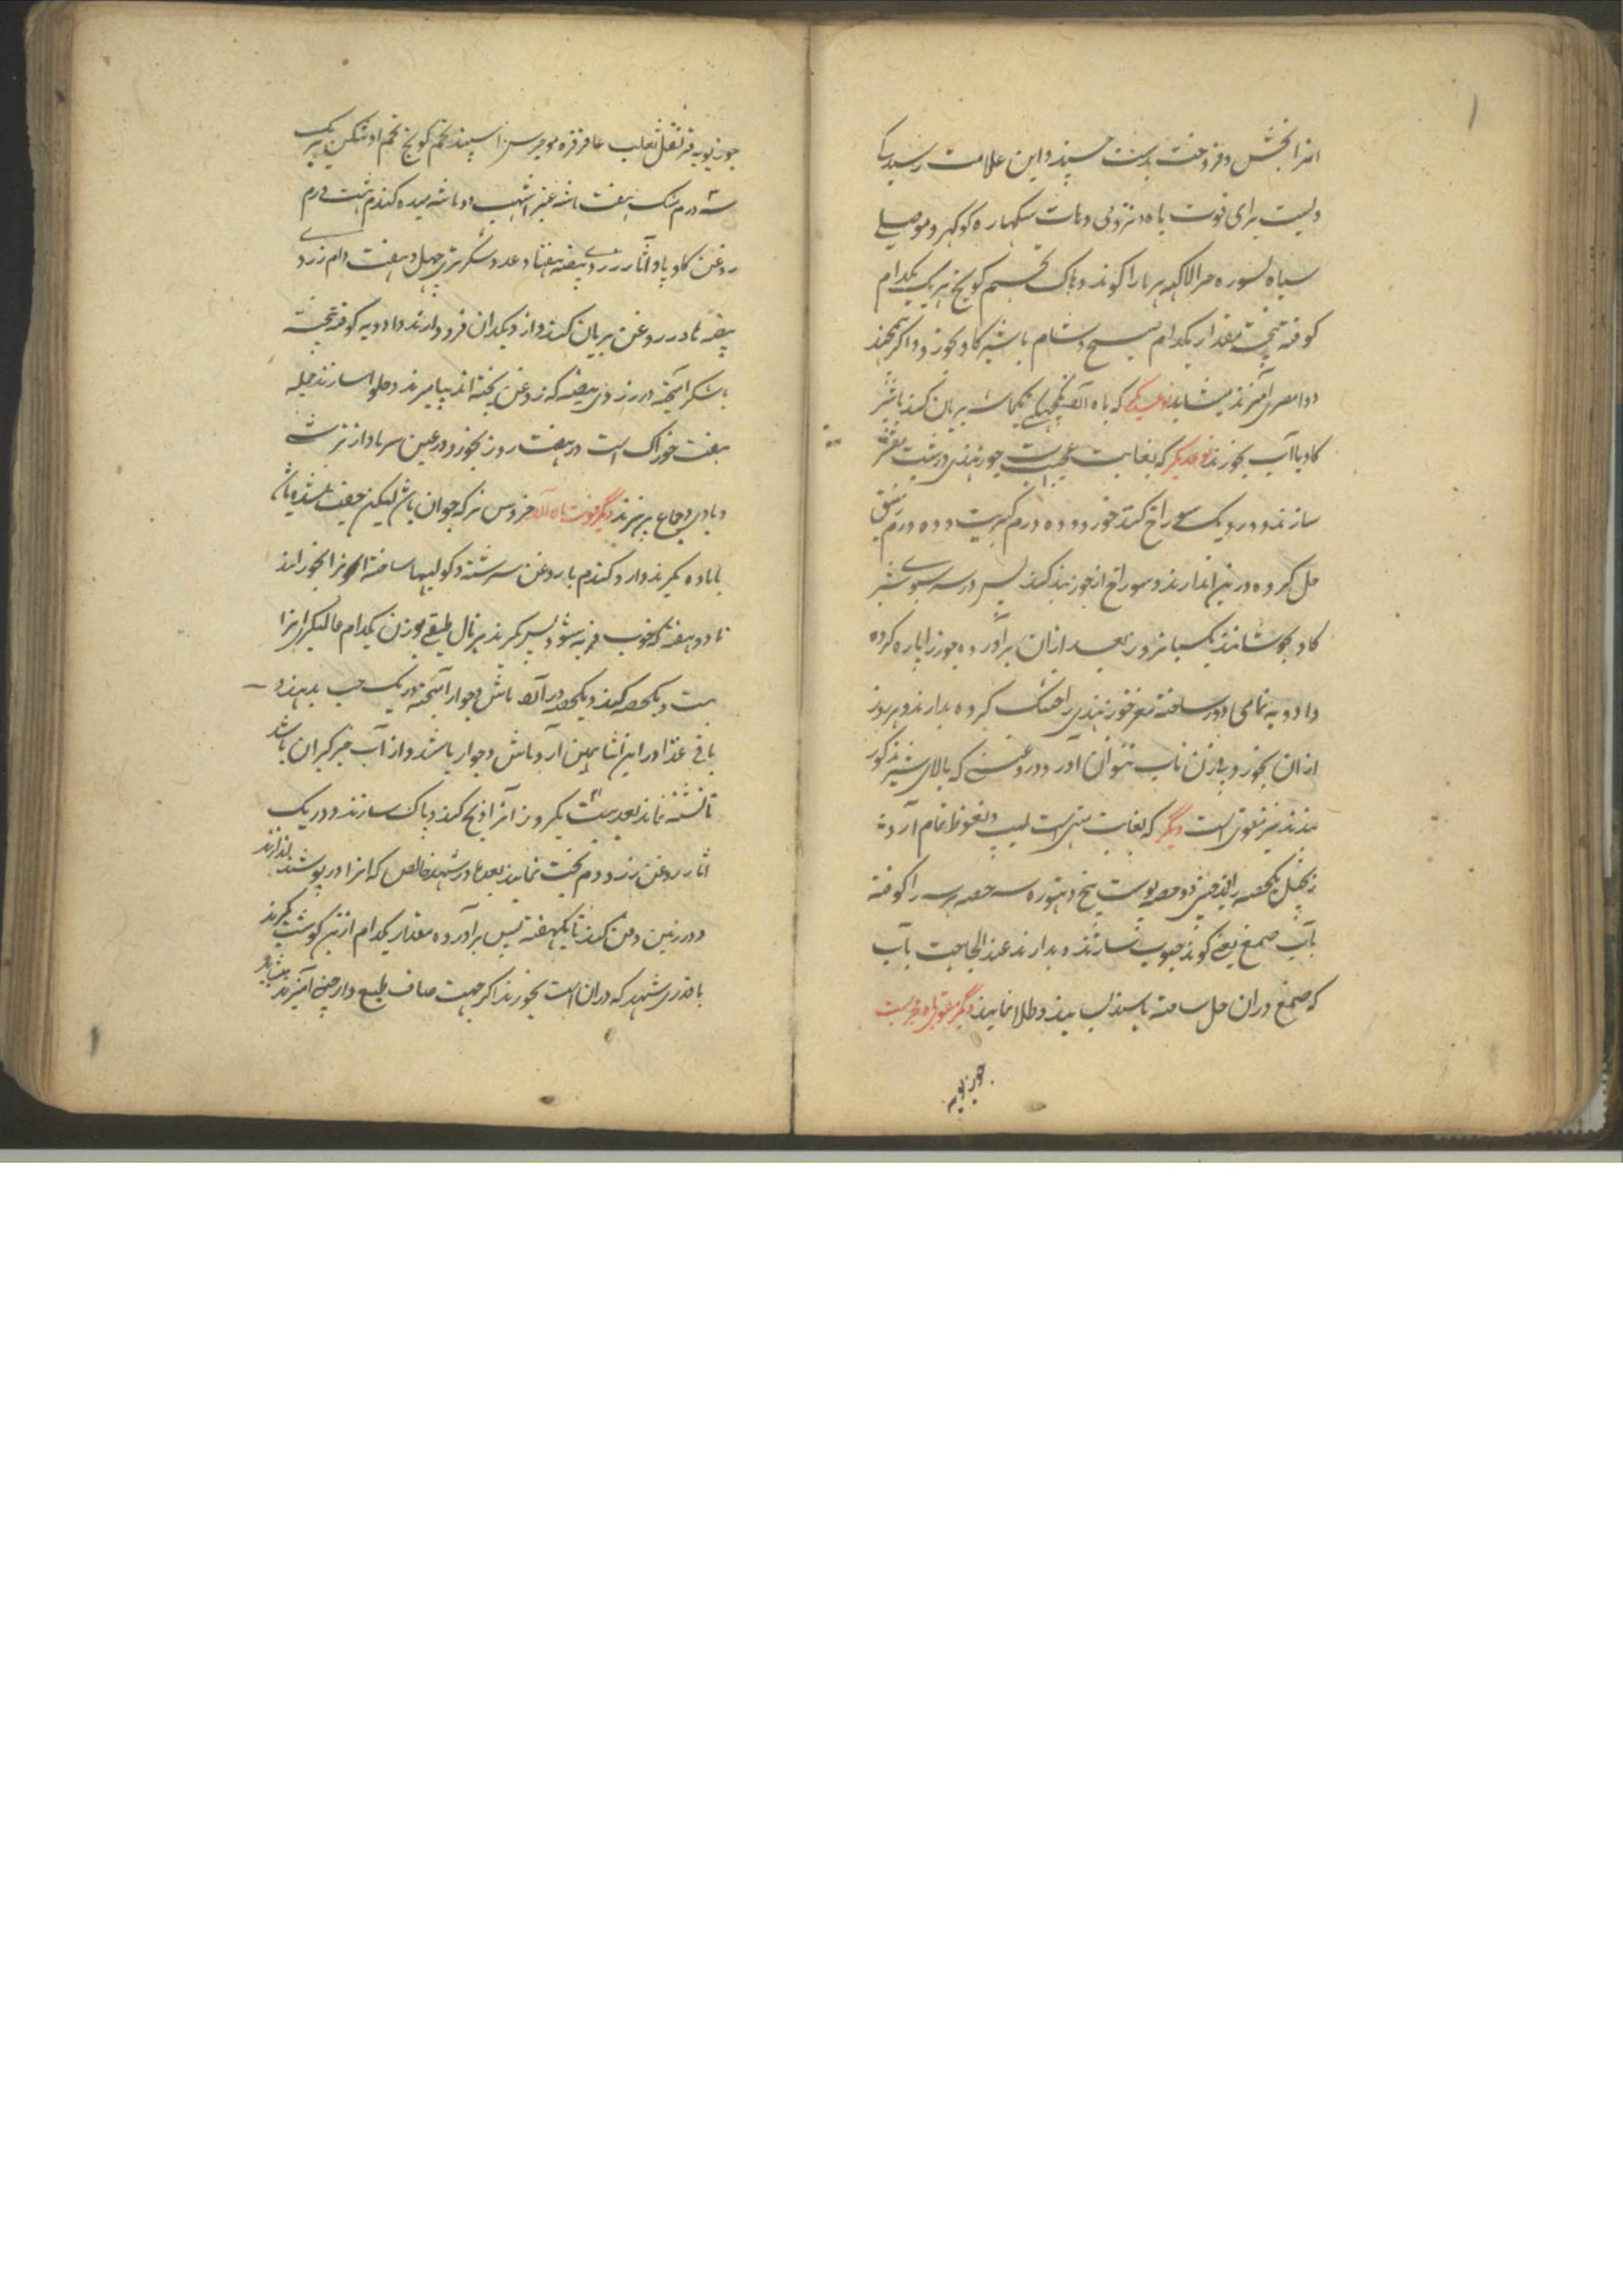 انرا بخش و فروخت بدست و این علامت رسید
برای قوت باه و منزدلی و دهات سنکهاره کوکهرو موصلی
سیاه کوند دهاک تخم کونچ هر یک یکدام
کوفته بیخته مقدار یکدام صبح و شام با شیر کاو بخورد و اگر
دوا مصری آمیزند میشاید نوع دیگر که باه آرد بریان کنند با شیر
کاو یا آب بخورند نوع دیگر که بغایت عجیب است جوز هندی درشت مقشر
سازند و در و یک سوراخ کنند خورد و ده درم کبریت و ده درم زیبق
حل کرده درین اندازند و سوراخ از جوز بند کنند پس در سه سبوی شیر
کاو بجوشانند یک شبانروز بعد ازان برآورده جوز را پاره کرده
و ادویه تمامی دور ساخته مغز جوز هندی را خشک کرده بدارند و هر روز
ازان بخورد با زن تاب نتوان آورد و روغنی که بالای شیر مذکور
بندند نیز مقوی است دیگر که بغایت مشهی است و نعوظ تمام آرد
زنجبیل یکحصه دو حصه پوست بیخ دهتوره سه حصه هر سه را کوفته
بآب صمغ یعنی کوند حبوب سازند و بدارند عند الحاجت بآب
که صمغ دران حل ساخته باشند بسایند و طلا نمایند دیگر مقوی باه مجربست
جوز بویه
جوز بویه قرنفل ثعلب عاقرقرحا اسپند تخم کونچ تخم اوتنکن هر یک
سه درم مشک هفت ماشه عنبر اشهب دو ماشه میده کندم هشت درم
روغن کاو پاو آثار زردی بیضه هفتاد عدد شکر تری چهل و هفت دام زردی
بیضه را در روغن بریان کنند و از دیکدان فرود آرند و ادویه کوفته بیخته
با شکر آمیخته در زردی بیضه که در روغن پخته اند بیامیزند و حلوا سازند جمله
هفت خوراک است در هفت روز بخورد و در عین سرما و از ترشی
و بادی و جماع پرهیزند دیگر قوت باه آرد خروس نر که جوان باشد لیکن جفت نشده باشد
با ماده بگیرند و آرد کندم با روغن سرشته و کولیها ساخته انرا بخورانند
تا دو هفته که خوب فربه شود پس بگیرند هرتال طبقی بوزن یکدام مالیکرانرا
بست و یکحصه کنند و یکحصه در آرد ماش و جوار آمیخته در یک حب بدهند و
باقی غذا در این اثنا همین آرد ماش و جوار باشد و از آب خبرگیران باشد
تا تشنه نماند بعد بست یکروز آنرا ذبح کنند و پاک سازند و در یک
اثار روغن زرد دم پخت نمایند بعده در شهد خالص که انرا در پوشند اندازند
و در زمین دفن کنند تا یکهفته پس برآورده مقدار یکدام ازین کوشت بگیرند
با قدری شهد که دران است بخورند اگر جهت صاف طبع دارچینی آمیزند میشاید